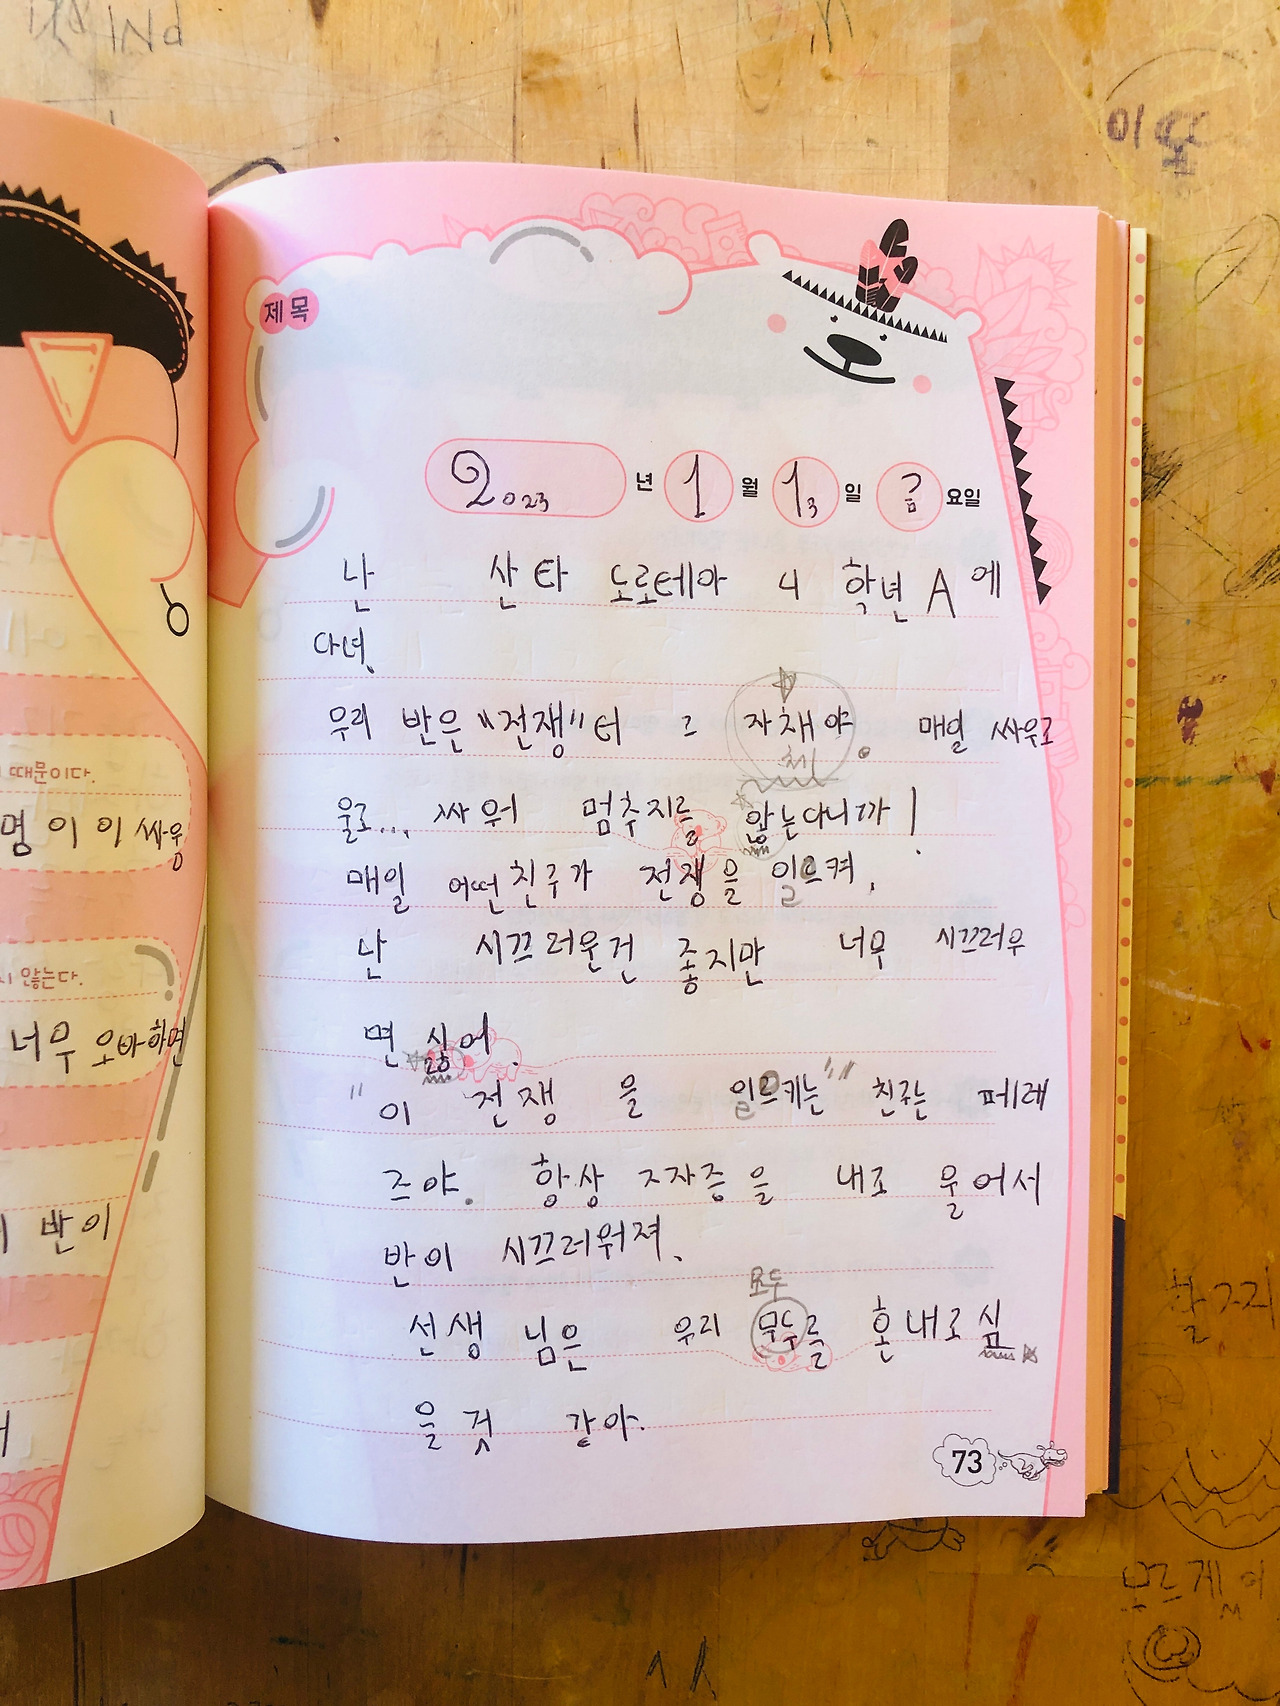 이또
때문이다.
명 이 이 싸움
시 않는다.
너무 오바하면
반이
제목
2023 년 1 월 13 일 금 요일
난 산타 도로테아 4 학년 A 에
다녀.
우리 반은 "전쟁"터 그 자채야. 매일 싸우고
체
울고... 싸워 멈추지를 않는다니까!
매일 어떤 친구가 전쟁을 일으켜.
난 시끄러운건 좋지만 너무 시끄러우
면 싫어.
"이 전쟁 을 일으키는" 친구는 페레
즈야. 항상 ㅈ자증을 내고 울어서
반이 시끄러워져.
모두
선생 님은 우리 무두를 혼내고 싶
을 것 같아.
73